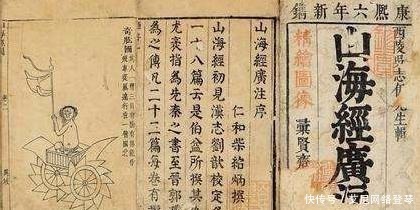 康熙六年新鐫
西陵吳志伊先生輯
山海經廣注
精繪圖像
彙賢齋
山海經廣注序
仁和柴紹炳撰
山海經初見漢志劉歆校定
一十八篇云是伯益所撰其
尤袤指為先秦之書至晉郭
為之傳凡二十三篇每卷有
奇肱國
快传号/艾尼网络登录